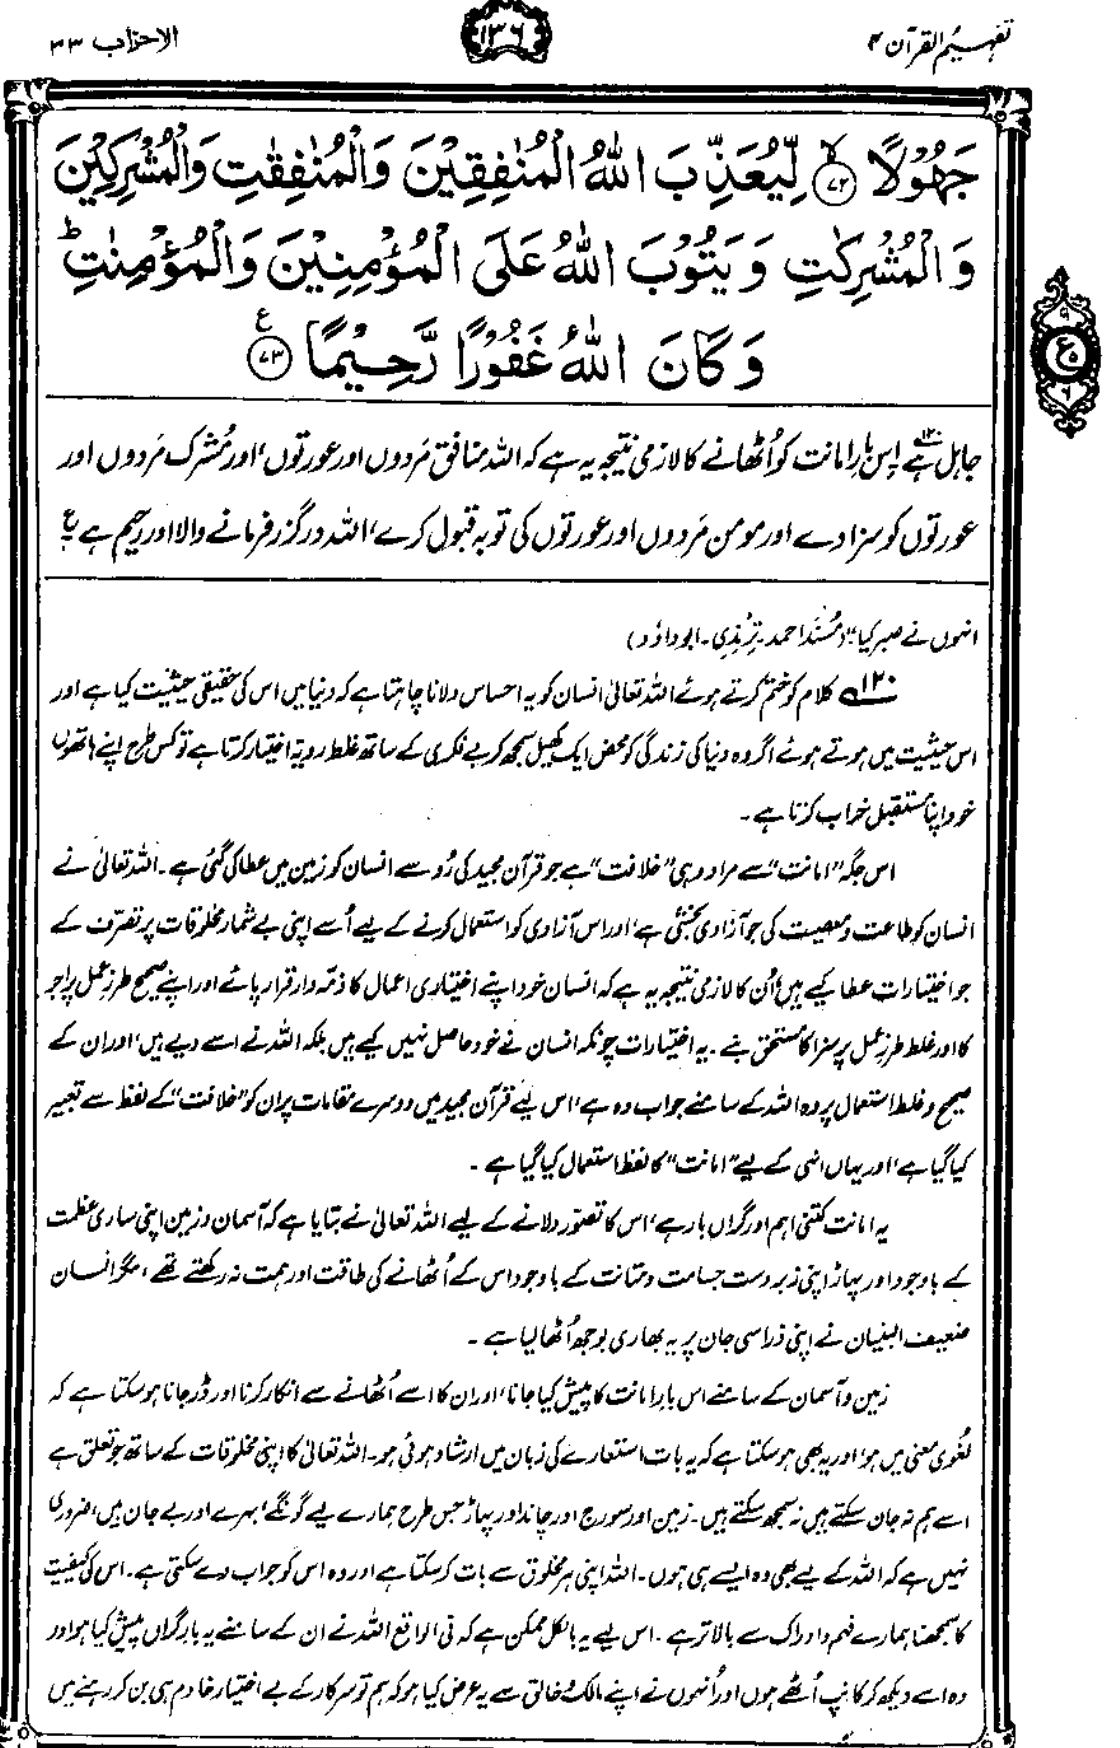 تفہیم القرآن ۴
۱۳۶
الاحزاب ۳۳
جَهُوْلًا ﴿۷۲﴾ لِّيُعَذِّبَ اللّٰهُ الْمُنٰفِقِيْنَ وَالْمُنٰفِقٰتِ وَالْمُشْرِكِيْنَ
وَالْمُشْرِكٰتِ وَيَتُوْبَ اللّٰهُ عَلَى الْمُؤْمِنِيْنَ وَالْمُؤْمِنٰتِ ؕ
وَكَانَ اللّٰهُ غَفُوْرًا رَّحِيْمًا ﴿۷۳﴾ ع
۹
ع
۵
۶
جاہل ہے۔۱۲۰ اِس بارِ امانت کو اُٹھانے کا لازمی نتیجہ یہ ہے کہ اللہ منافق مَردوں اور عورتوں، اور مُشرک مَردوں اور
عورتوں کو سزا دے اور مومن مَردوں اور عورتوں کی توبہ قبول کرے، اللہ درگزر فرمانے والا اور رحیم ہے ع
انہوں نے صبر کیا" (مُسنَد احمد۔ تِرمذِی۔ ابوداؤد)
۱۲۰ کلام کو ختم کرتے ہوئے اللہ تعالیٰ انسان کو یہ احساس دلانا چاہتا ہے کہ دنیا میں اس کی حقیقی حیثیت کیا ہے اور
اس حیثیت میں ہوتے ہوئے اگر وہ دنیا کی زندگی کو محض ایک کھیل سمجھ کر بے فکری کے ساتھ غلط رویّہ اختیار کرتا ہے تو کس طرح اپنے ہاتھوں
خود اپنا مستقبل خراب کرتا ہے۔
اس جگہ "امانت" سے مراد وہی "خلافت" ہے جو قرآن مجید کی رُو سے انسان کو زمین میں عطا کی گئی ہے۔ اللہ تعالیٰ نے
انسان کو طاعت و معصیت کی جو آزادی بخشی ہے، اور اس آزادی کو استعمال کرنے کے لیے اُسے اپنی بے شمار مخلوقات پر تصرّف کے
جو اختیارات عطا کیے ہیں، اُن کا لازمی نتیجہ یہ ہے کہ انسان خود اپنے اختیاری اعمال کا ذمّہ دار قرار پائے اور اپنے صحیح طرزِ عمل پر اجر
کا اور غلط طرزِ عمل پر سزا کا مستحق بنے۔ یہ اختیارات چونکہ انسان نے خود حاصل نہیں کیے ہیں بلکہ اللہ نے اسے دیے ہیں، اور ان کے
صحیح و غلط استعمال پر وہ اللہ کے سامنے جواب دہ ہے، اس لیے قرآن مجید میں دوسرے مقامات پر ان کو "خلافت" کے لفظ سے تعبیر
کیا گیا ہے، اور یہاں انہی کے لیے "امانت" کا لفظ استعمال کیا گیا ہے۔
یہ امانت کتنی اہم اور گراں بار ہے، اس کا تصوّر دلانے کے لیے اللہ تعالیٰ نے بتایا ہے کہ آسمان و زمین اپنی ساری عظمت
کے باوجود اور پہاڑ اپنی زبردست جسامت و متانت کے باوجود اس کے اُٹھانے کی طاقت اور ہمت نہ رکھتے تھے، مگر انسان
ضعیف البنیان نے اپنی ذرا سی جان پر یہ بھاری بوجھ اُٹھا لیا ہے۔
زمین و آسمان کے سامنے اس بارِ امانت کا پیش کیا جانا، اور ان کا اسے اُٹھانے سے انکار کرنا اور ڈر جانا ہو سکتا ہے کہ
لُغوی معنی میں ہو، اور یہ بھی ہو سکتا ہے کہ یہ بات استعارے کی زبان میں ارشاد ہوئی ہو۔ اللہ تعالیٰ کا اپنی مخلوقات کے ساتھ جو تعلق ہے
اسے ہم نہ جان سکتے ہیں نہ سمجھ سکتے ہیں۔ زمین اور سورج اور چاند اور پہاڑ جس طرح ہمارے لیے گونگے، بہرے اور بے جان ہیں، ضروری
نہیں ہے کہ اللہ کے لیے بھی وہ ایسے ہی ہوں۔ اللہ اپنی ہر مخلوق سے بات کر سکتا ہے اور وہ اس کو جواب دے سکتی ہے۔ اس کی کیفیت
کا سمجھنا ہمارے فہم و ادراک سے بالاتر ہے۔ اس لیے یہ بالکل ممکن ہے کہ فی الواقع اللہ نے ان کے سامنے یہ بارِ گراں پیش کیا ہو اور
وہ اسے دیکھ کر کانپ اُٹھے ہوں اور اُنہوں نے اپنے مالک و خالق سے یہ عرض کیا ہو کہ ہم تو سرکار کے بے اختیار خادم ہی بن کر رہنے میں